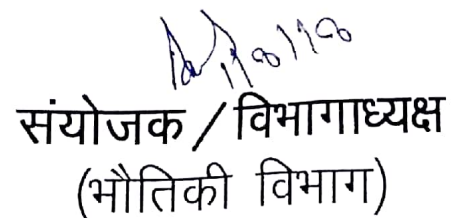 संयोजक / विभागाध्यक्ष
(भौतिकी विभाग)